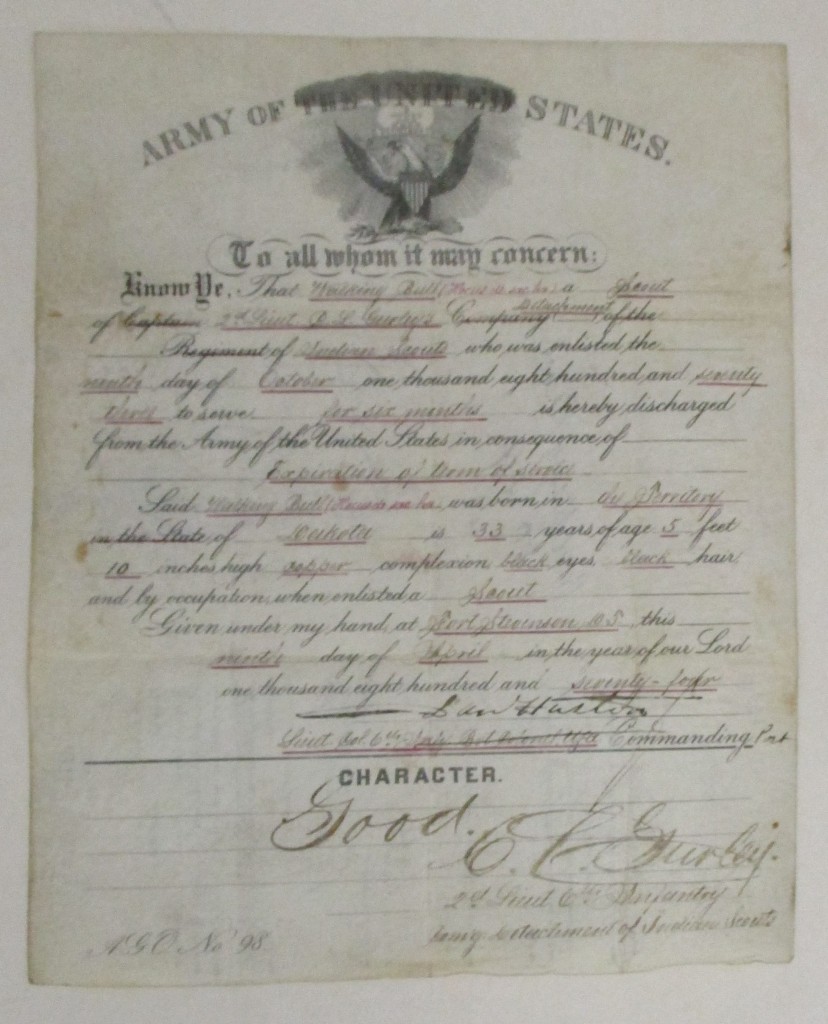 ARMY OF THE UNITED STATES.
To all whom it may concern:
Know Ye, That Walking Bull a Scout
of Captain 2d Lieut Gurley's Company Detachment of the
Regiment of Indian Scouts who was enlisted the
ninth day of October one thousand eight hundred and seventy
three to serve for six months is hereby discharged
from the Army of the United States in consequence of
Expiration of term of service
Said Walking Bull was born in Territory
in the State of Dakota is 33 years of age 5 feet
10 inches high copper complexion black eyes black hair
and by occupation when enlisted a Scout
Given under my hand at Fort Stevenson this
ninth day of April in the year of our Lord
one thousand eight hundred and seventy-four
Danl Huston
Lieut Col. 6th Infy Bvt Colonel USA Commanding Post
CHARACTER.
Good.
C. L. Gurley.
2d Lieut 6th Infantry
Comg Detachment of Indian Scouts
A.G.O. No 98